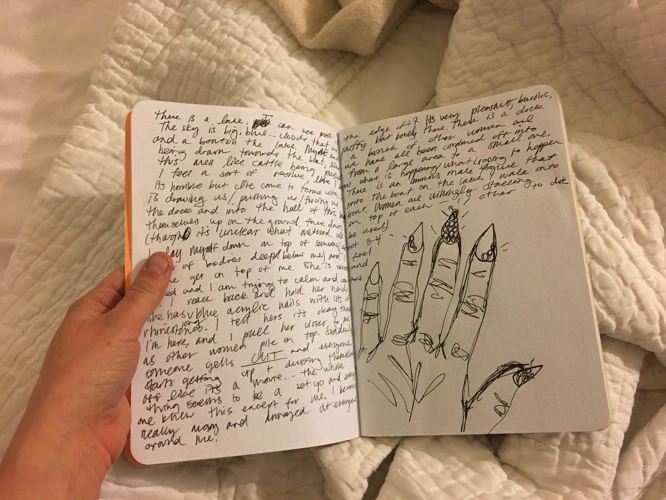 There is a lake. I can see most the edge of it. Its very pleasant, bucolic,
The sky is big, blue.. clouds that puffy but barely there. There is a dock
and a boat on the lake. Myself and a bunch of other women are
being drawn towards the boat, we have all been cordoned off into
this area like cattle being from a large area to a small one.
I feel a sort of passive like I know what is happening, what is going to happen
Its horrible but Ive come to terms with There is an ominous male figure that
is drawing us / pulling us / forcing us onto the boat on the lake. I walk onto
the dock and into the hull of this boat. Women are willingly stacking
themselves up on the ground, three deep on top of each other to die
(though it's unclear what method will be used).
I lay myself down on top of someone about 3-4
of bodies deep below me) and feel
one get on top of me. She is and
and I am trying to calm
I reach back and hold her hand
she has blue long acrylic nails with lots of
rhinestones. I tell her its okay that
I'm here, and I pull her closer to me
as other women pile on top. Suddenly
someone yells CUT and everyone
starts getting up + dusting themselves
off like its a movie... the whole
thing seems to be a set up and every
one knew this except for me. I become
really angry and at everyone
around me.